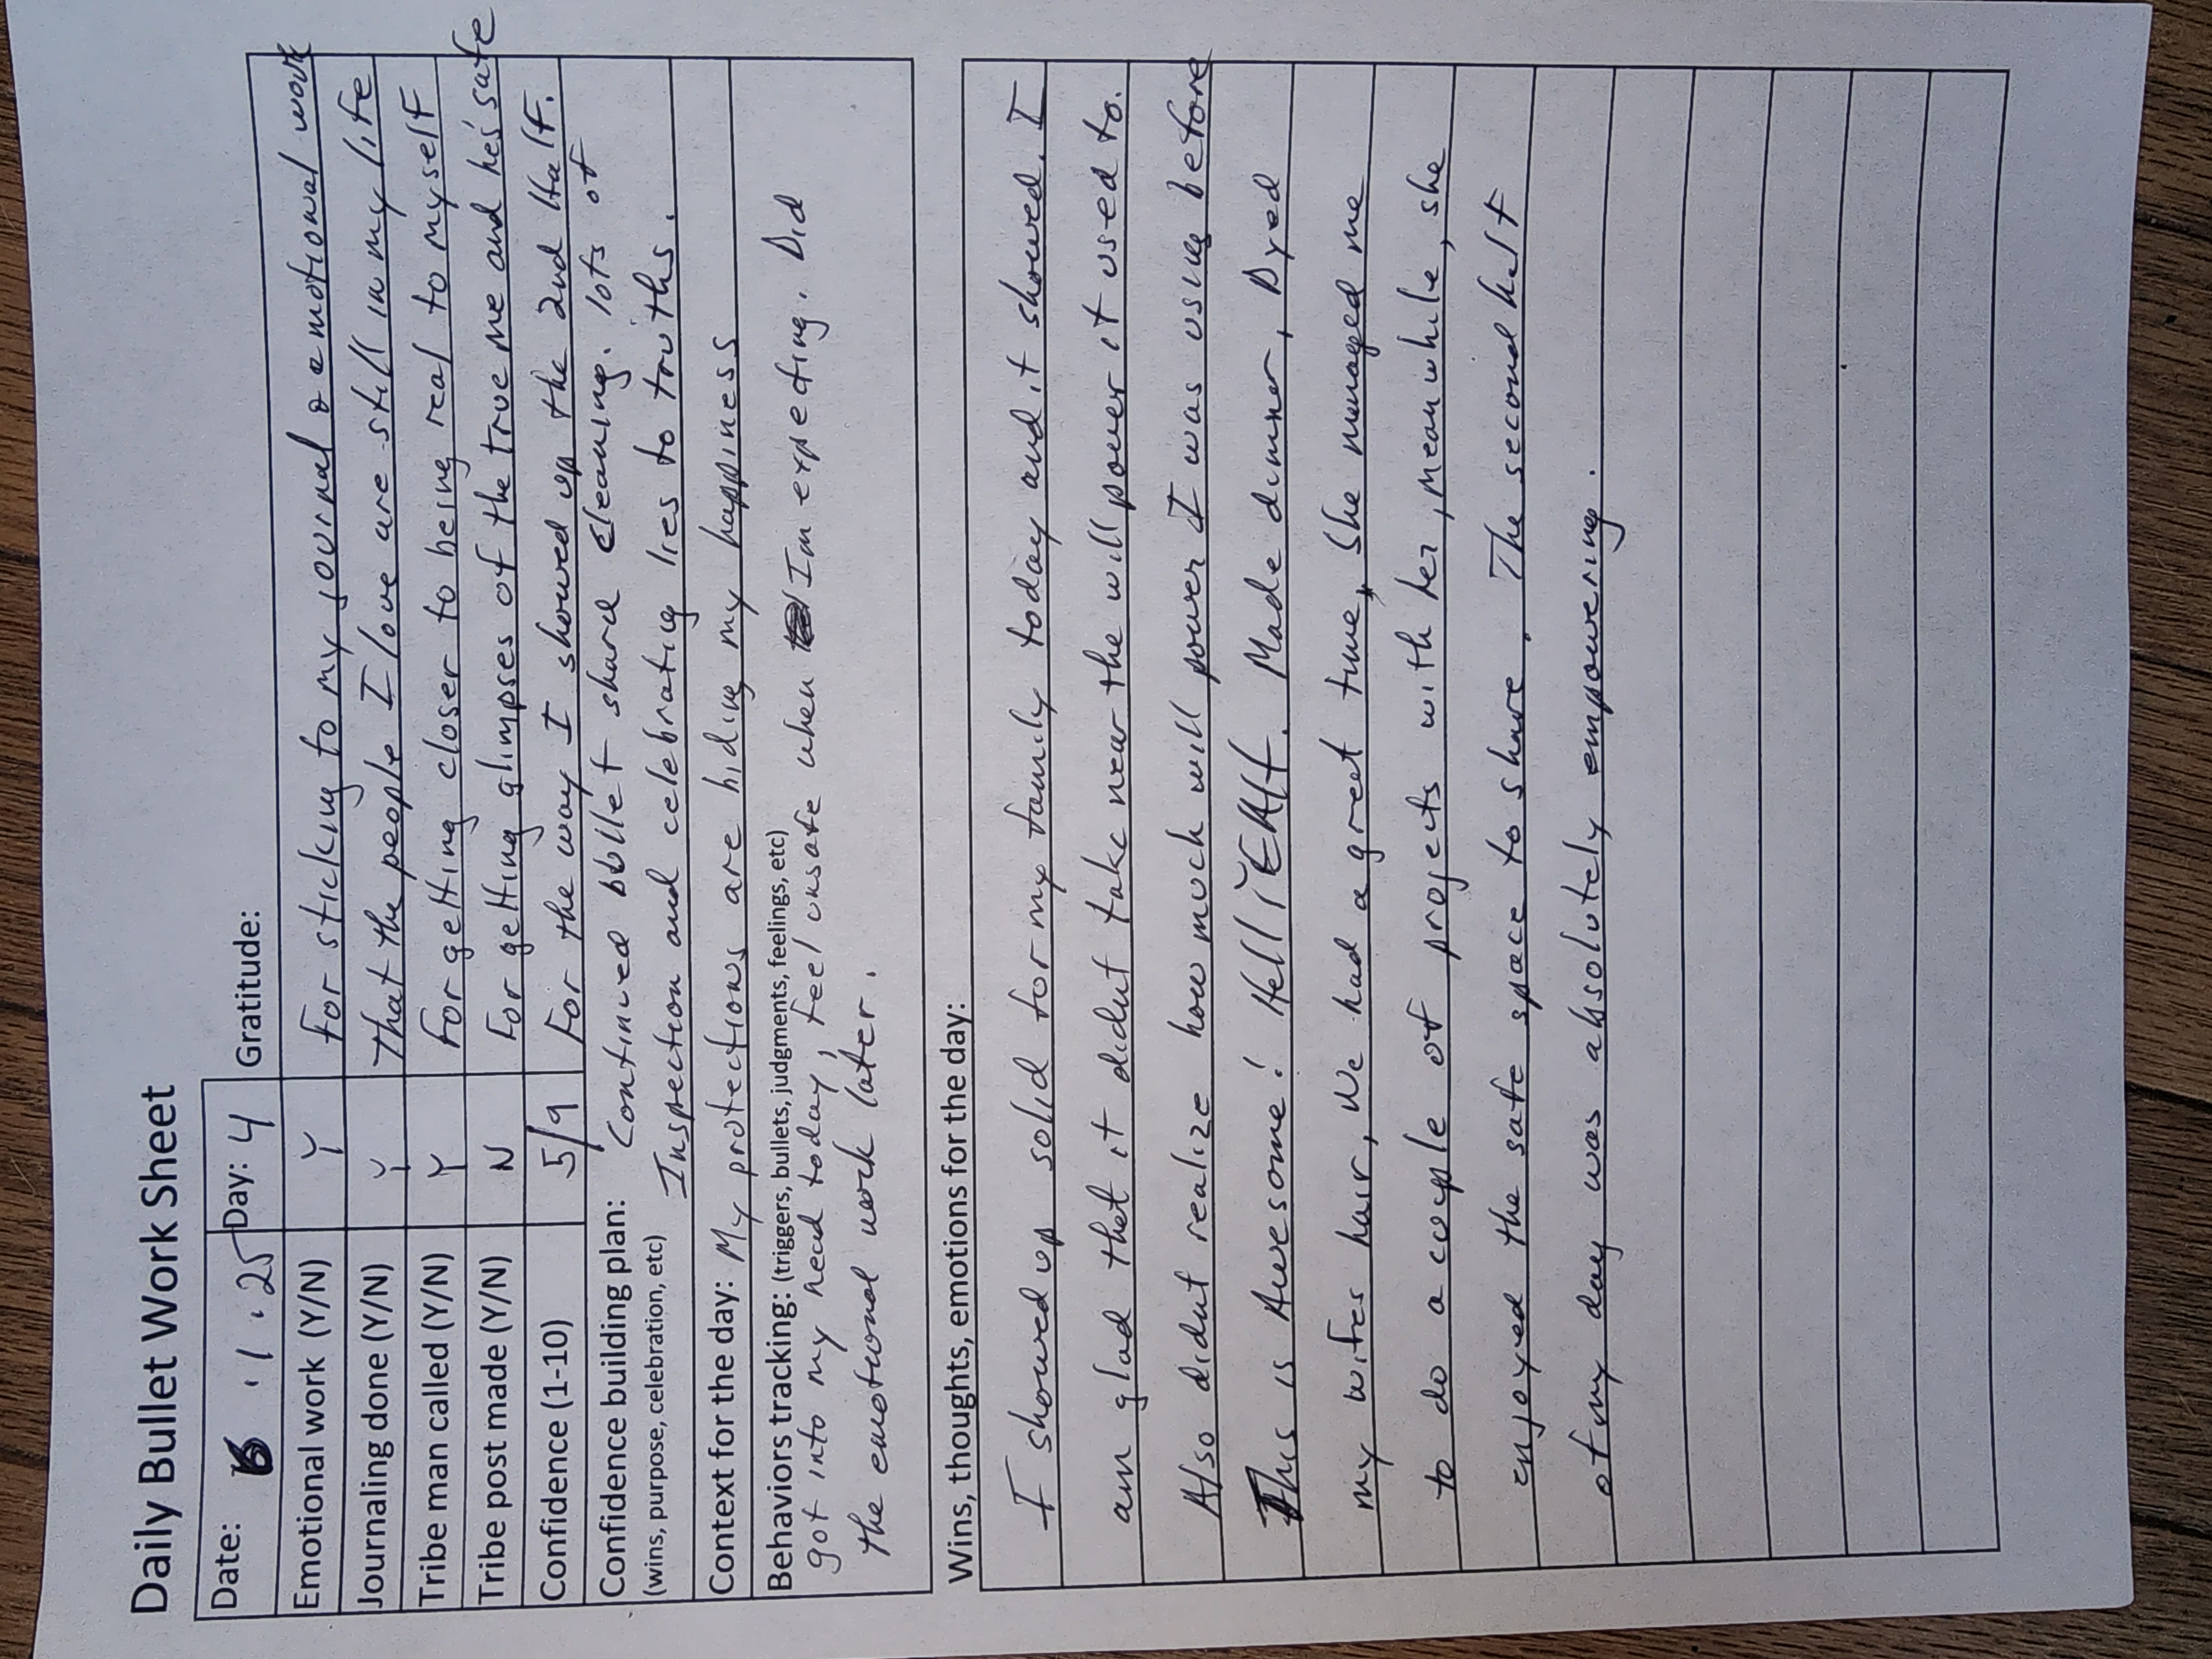 Daily Bullet Work Sheet
Date: 6 . 1 . 25 Day: 4 Gratitude:
Emotional work (Y/N) Y For sticking to my journal & emotional work
Journaling done (Y/N) Y That the people I love are still in my life
Tribe man called (Y/N) Y For getting closer to being real to myself
Tribe post made (Y/N) N For getting glimpses of the true me and he's safe
Confidence (1-10) 5/9 For the way I showed up the 2nd Half.
Confidence building plan: Continued bullet share cleaning. lots of
(wins, purpose, celebration, etc) Inspection and celebrating lies to truths.
Context for the day: My protections are hiding my happiness
Behaviors tracking: (triggers, bullets, judgments, feelings, etc)
got into my head today, feel unsafe when I'm expecting. Did
the emotional work later.
Wins, thoughts, emotions for the day:
I showed up solid for my family today and it showed. I
am glad that it didnt take near the will power it used to.
Also didnt realize how much will power I was using before
This is Awesome! Hell YEAH. Made dinner, Dyed
my wifes hair, we had a great time, she managed me
to do a couple of projects with her, meanwhile, she
enjoyed the safe space to share. The second half
of my day was absolutely empowering.